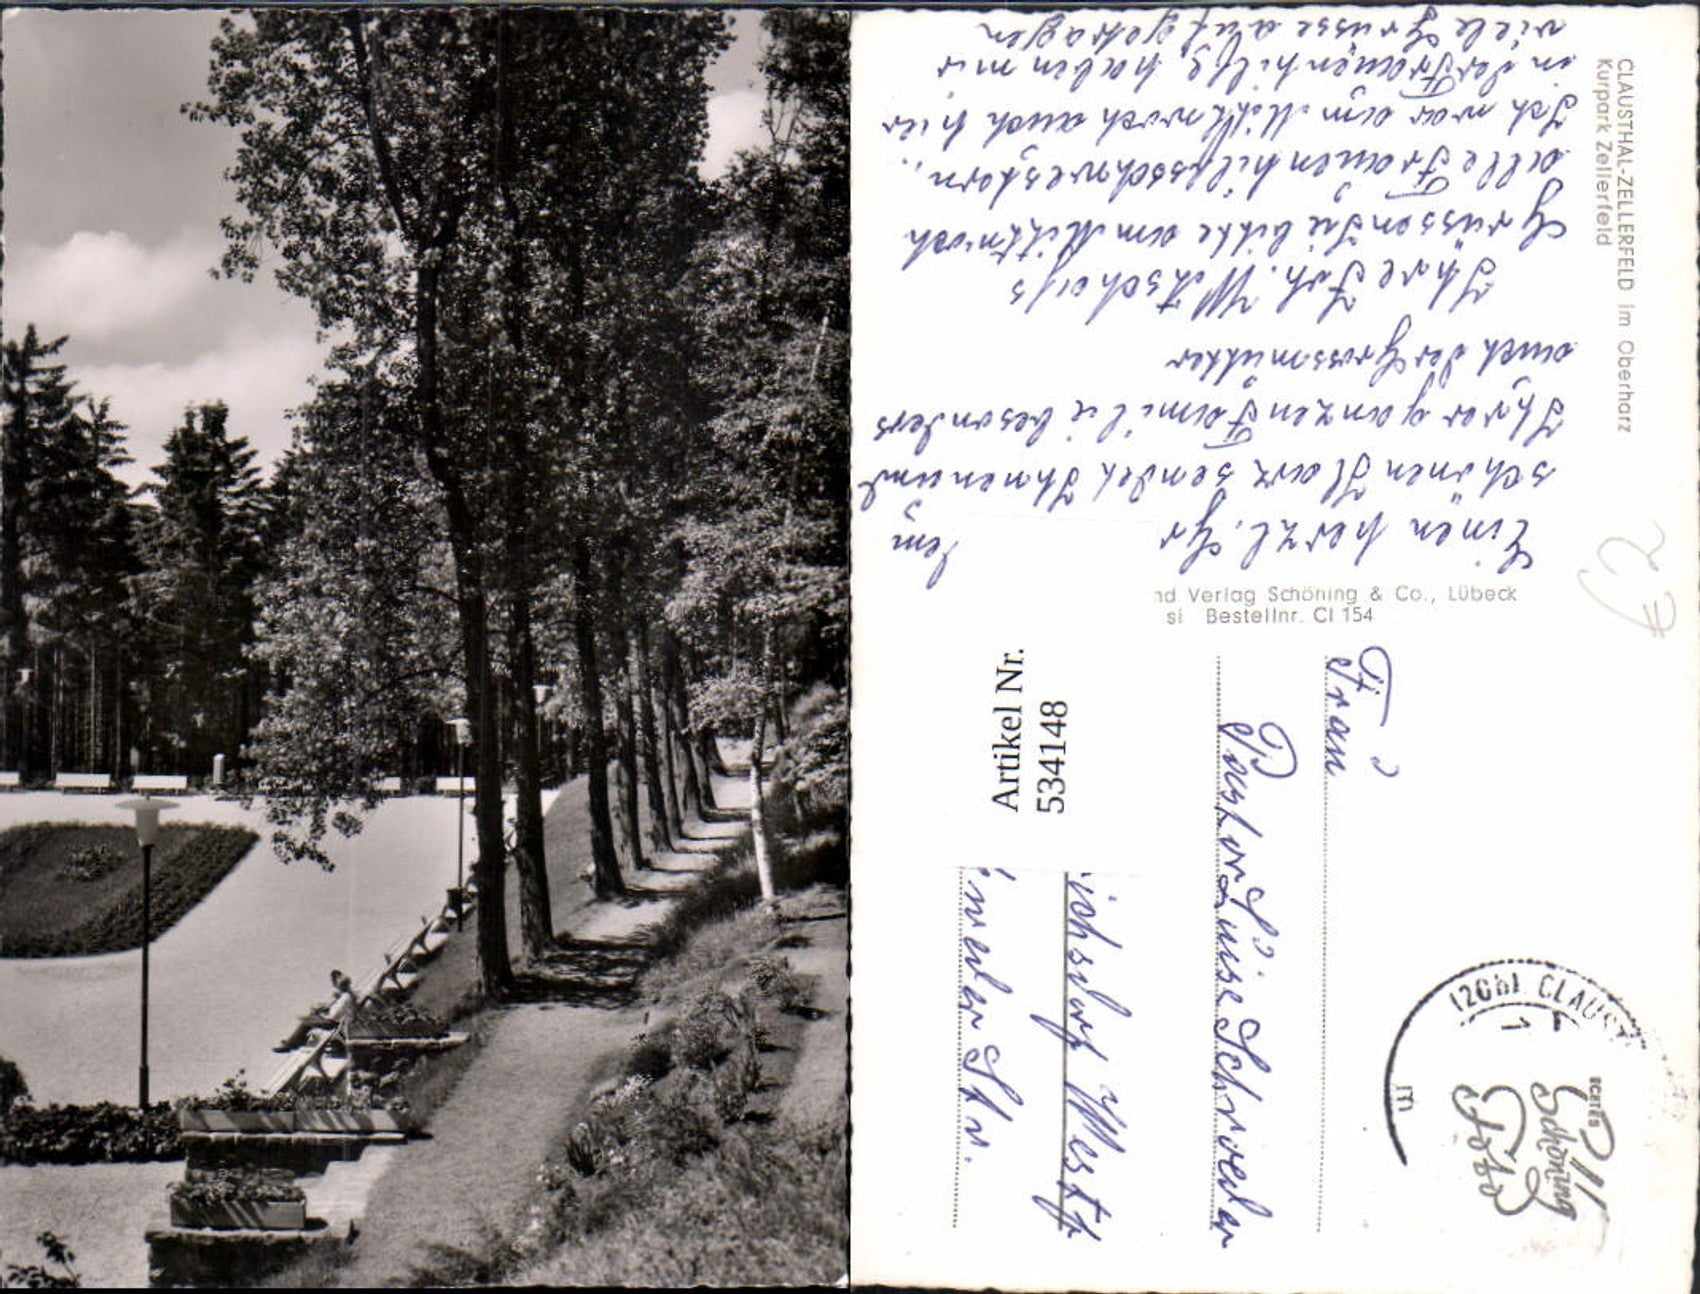 CLAUSTHAL-ZELLERFELD im Oberharz
Kurpark Zellerfeld
Einen herzl. Gr
dem
schönen Harz sendet Ihnen und
Ihrer ganzen Familie besonders
auch der Grossmutter
Ihre Joh.
Grüssen Sie bitte am Mittwoch
alle Frauenhilfsschwestern.
Ich war am Mittwoch auch hier
in der Frauenhilfe, haben mir
viele Grüsse aufgetragen
nd Verlag Schöning & Co., Lübeck
si Bestellnr. Cl 154
Artikel Nr.
534148
Frau
Pastor Luise Schroeder
ichsdorf Westf
Str.
(20b) CLAUST
ECHTES
Schöning
Foto